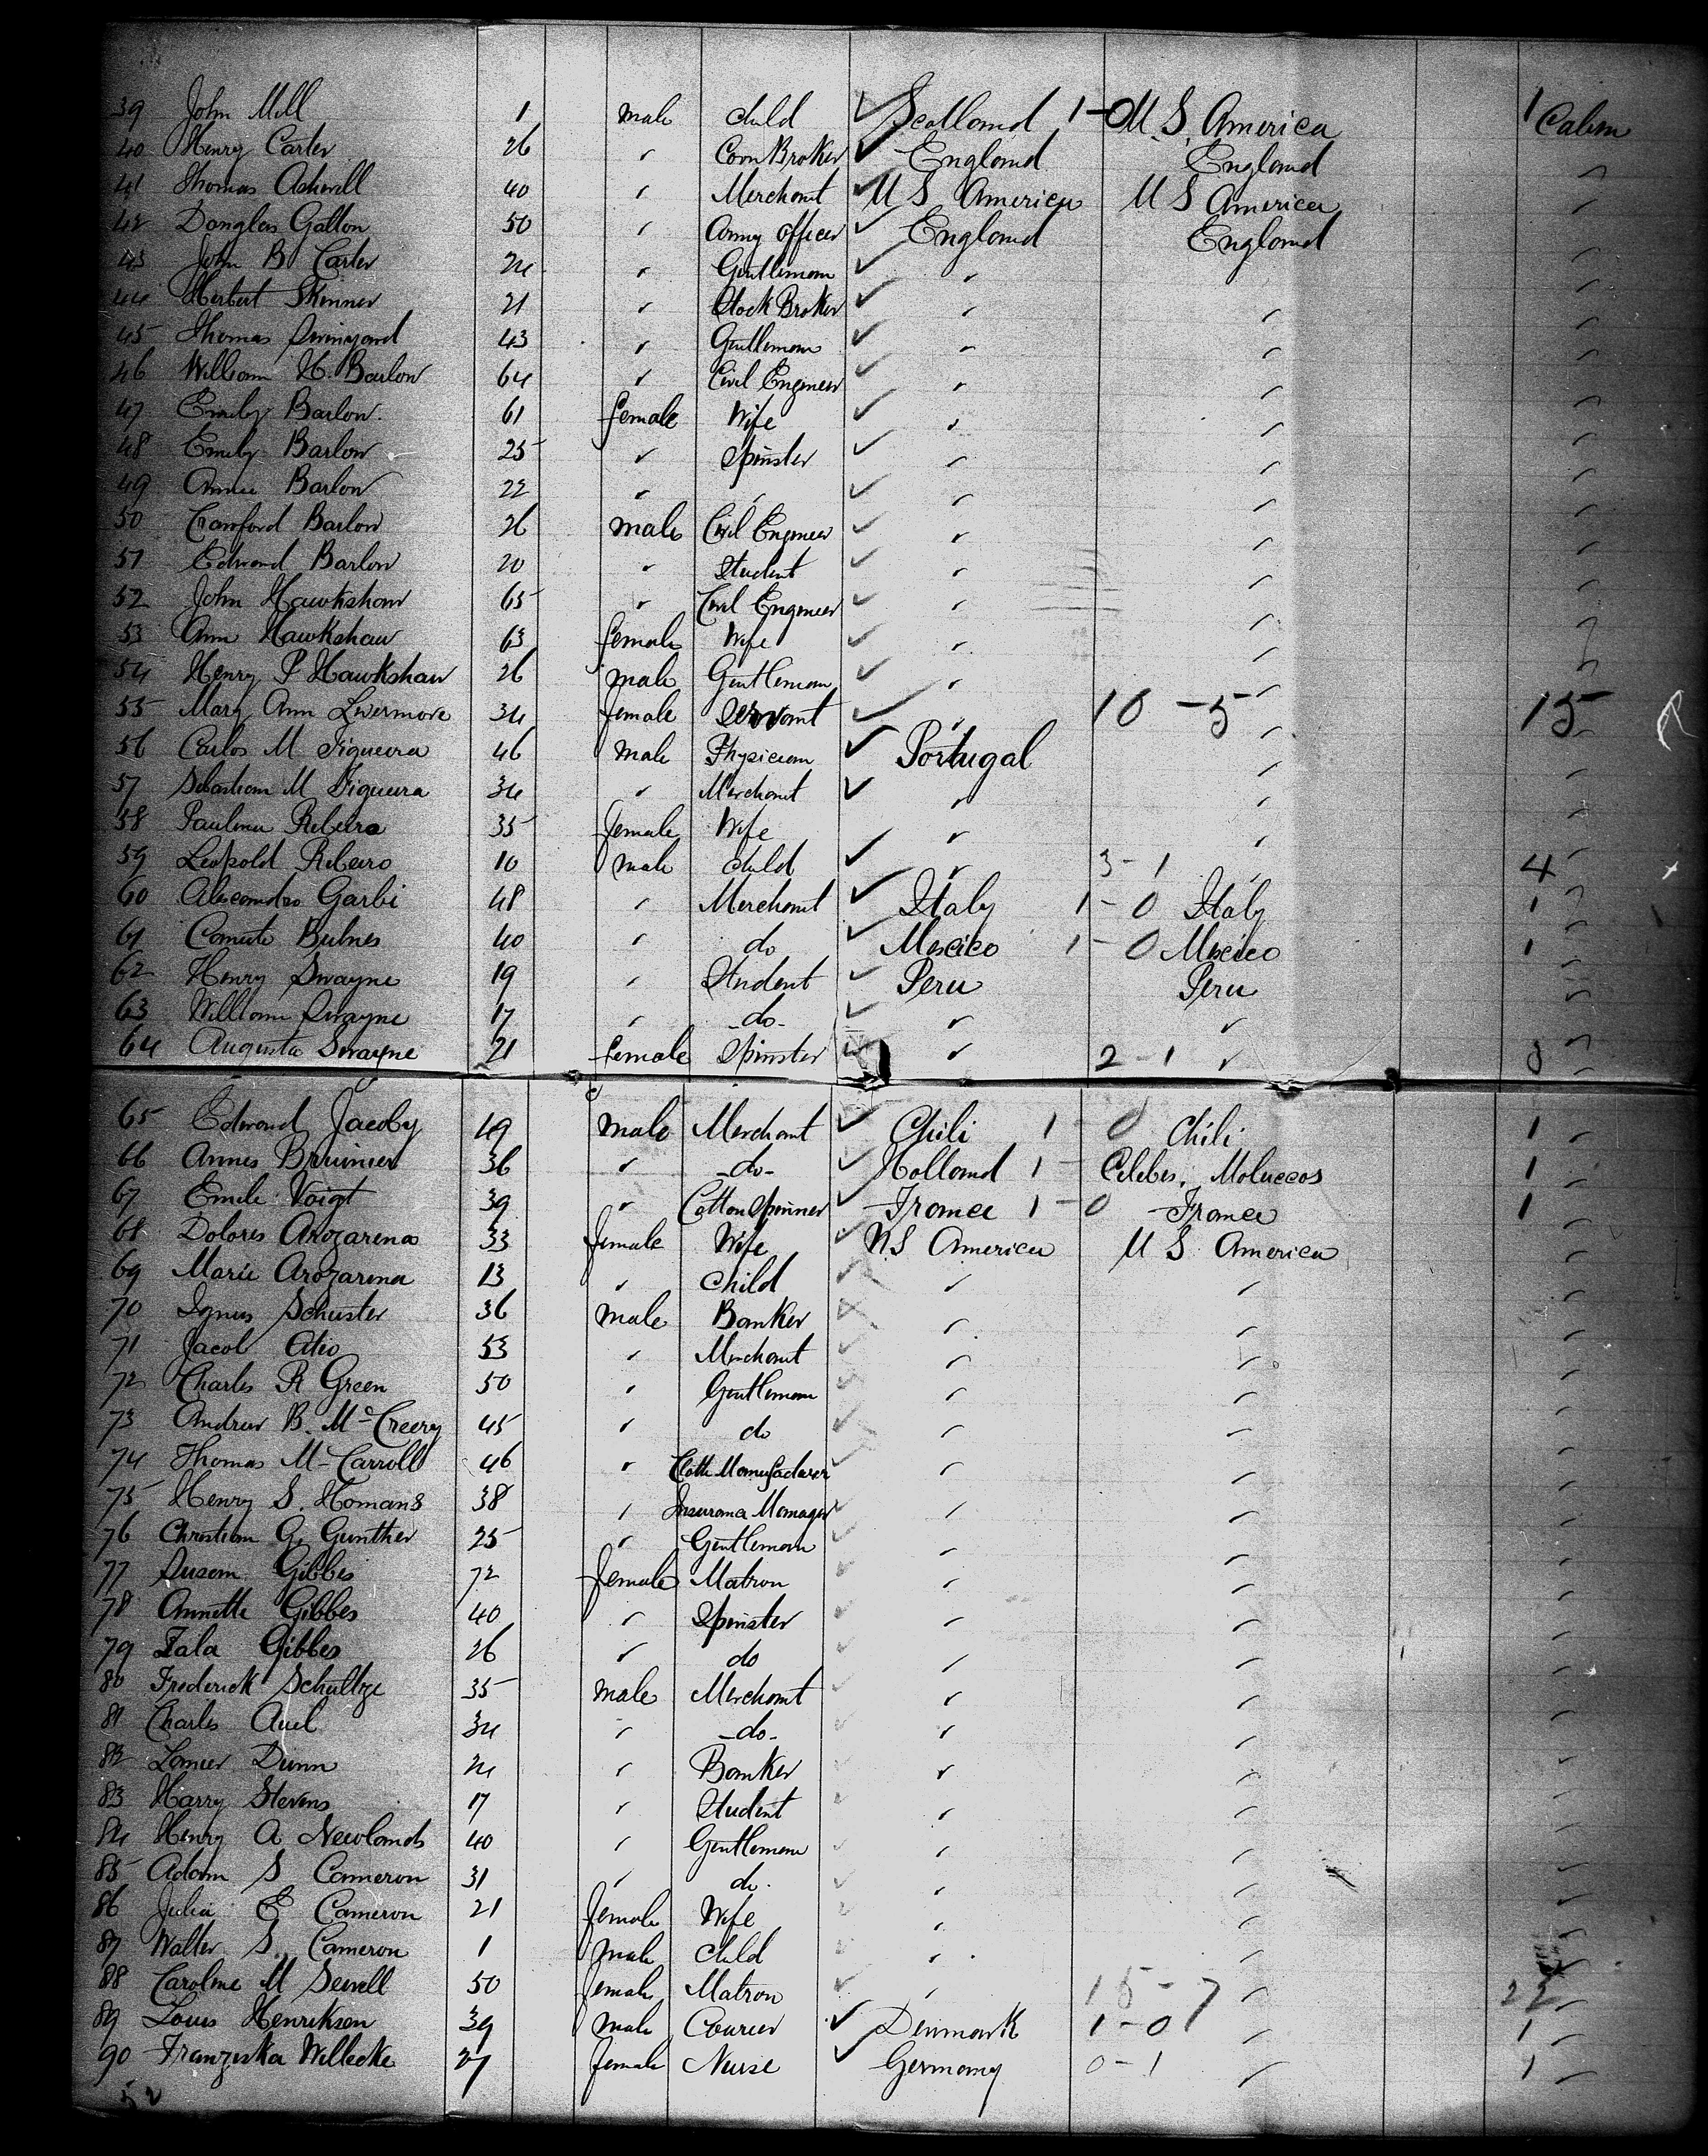 39 John Mill 1 male child ✓ Scotland 1-0 U S America 1 Cabin
40 Henry Carter 26 " Corn Broker ✓ England England "
41 Thomas Ashwell 40 " Merchant ✓ U S America U S America "
42 Douglas Galton 50 " Army officer ✓ England England
43 John B Carter 24 " Gentleman ✓ " "
44 Herbert Skinner 21 " Stock Broker ✓ " " "
45 Thomas Swinyard 43 " Gentleman ✓ " " "
46 William H. Barlow 64 " Civil Engineer ✓ " " "
47 Emily Barlow 61 female Wife ✓ " " "
48 Emily Barlow 25 " Spinster ✓ " " "
49 Annie Barlow 22 " " ✓ " " "
50 Crawford Barlow 26 male Civil Engineer ✓ " " "
51 Edward Barlow 20 " Student ✓ " " "
52 John Hawkshaw 65 " Civil Engineer ✓ " " "
53 Ann Hawkshaw 63 female Wife ✓ " " "
54 Henry P Hawkshaw 26 male Gentleman ✓ " " "
55 Mary Ann Livermore 34 female Servant ✓ " 10-5 " 15 "
56 Carlos M Figueira 46 male Physician ✓ Portugal " "
57 Sebastian M Figueira 34 " Merchant ✓ " " "
58 Paulina Ribeira 35 female Wife ✓ " " "
59 Leopold Ribeiro 10 male child ✓ " 3-1 " 4 "
60 Alescandro Garbi 48 " Merchant ✓ Italy 1-0 Italy 1 "
61 Bulnes 40 " do ✓ Mexico 1-0 Mexico 1 "
62 Henry Swayne 19 " Student ✓ Peru Peru "
63 William Swayne 17 " -do- ✓ " " "
64 Augusta Swayne 21 female Spinster ✓ " 2-1 " 3 "
65 Edward Jacoby 49 male Merchant ✓ Chili 1-0 Chili 1 "
66 Annes Bruinier 36 " -do- ✓ Holland 1- Celebes, Moluccos 1 "
67 Emile Voigt 39 " Cotton Spinner ✓ France 1-0 France 1 "
68 Dolores Arozarena 33 female Wife U S America U S America "
69 Marie Arozarena 13 " Child ✓ " " "
70 Ignus Schuster 36 male Banker " " "
71 Jacob 53 " Merchant ✓ " " "
72 Charles R Green 50 " Gentleman " " "
73 Andrew B. McCreery 45 " do ✓ " " "
74 Thomas M-Carroll 46 " Cloth Manufacturer ✓ " " "
75 Henry S. Homans 38 " Insurance Manager ✓ " " "
76 Christian G. Gunther 25 " Gentleman ✓ " " "
77 Susan Gibbes 72 female Matron ✓ " " "
78 Annette Gibbes 40 " Spinster ✓ " " "
79 Zala Gibbes 26 " do ✓ " " "
80 Frederick Schultze 35 male Merchant ✓ " " "
81 Charles Auel 34 " -do- ✓ " " "
82 Dunn 24 " Banker ✓ " " "
83 Harry Stevens 17 " Student ✓ " " "
84 Henry A Newlands 40 " Gentleman ✓ " " "
85 Adam S Cameron 31 " do. ✓ " " "
86 Julia E Cameron 21 female Wife ✓ " " "
87 Walter S. Cameron 1 male child ✓ " " "
88 Caroline M Sewell 50 female Matron ✓ " 15-7 " 22 "
89 Louis Henriksen 39 male Courier ✓ Denmark 1-0 " 1 "
90 Franziska Willecke 27 female Nurse ✓ Germany 0-1 " 1 "
52